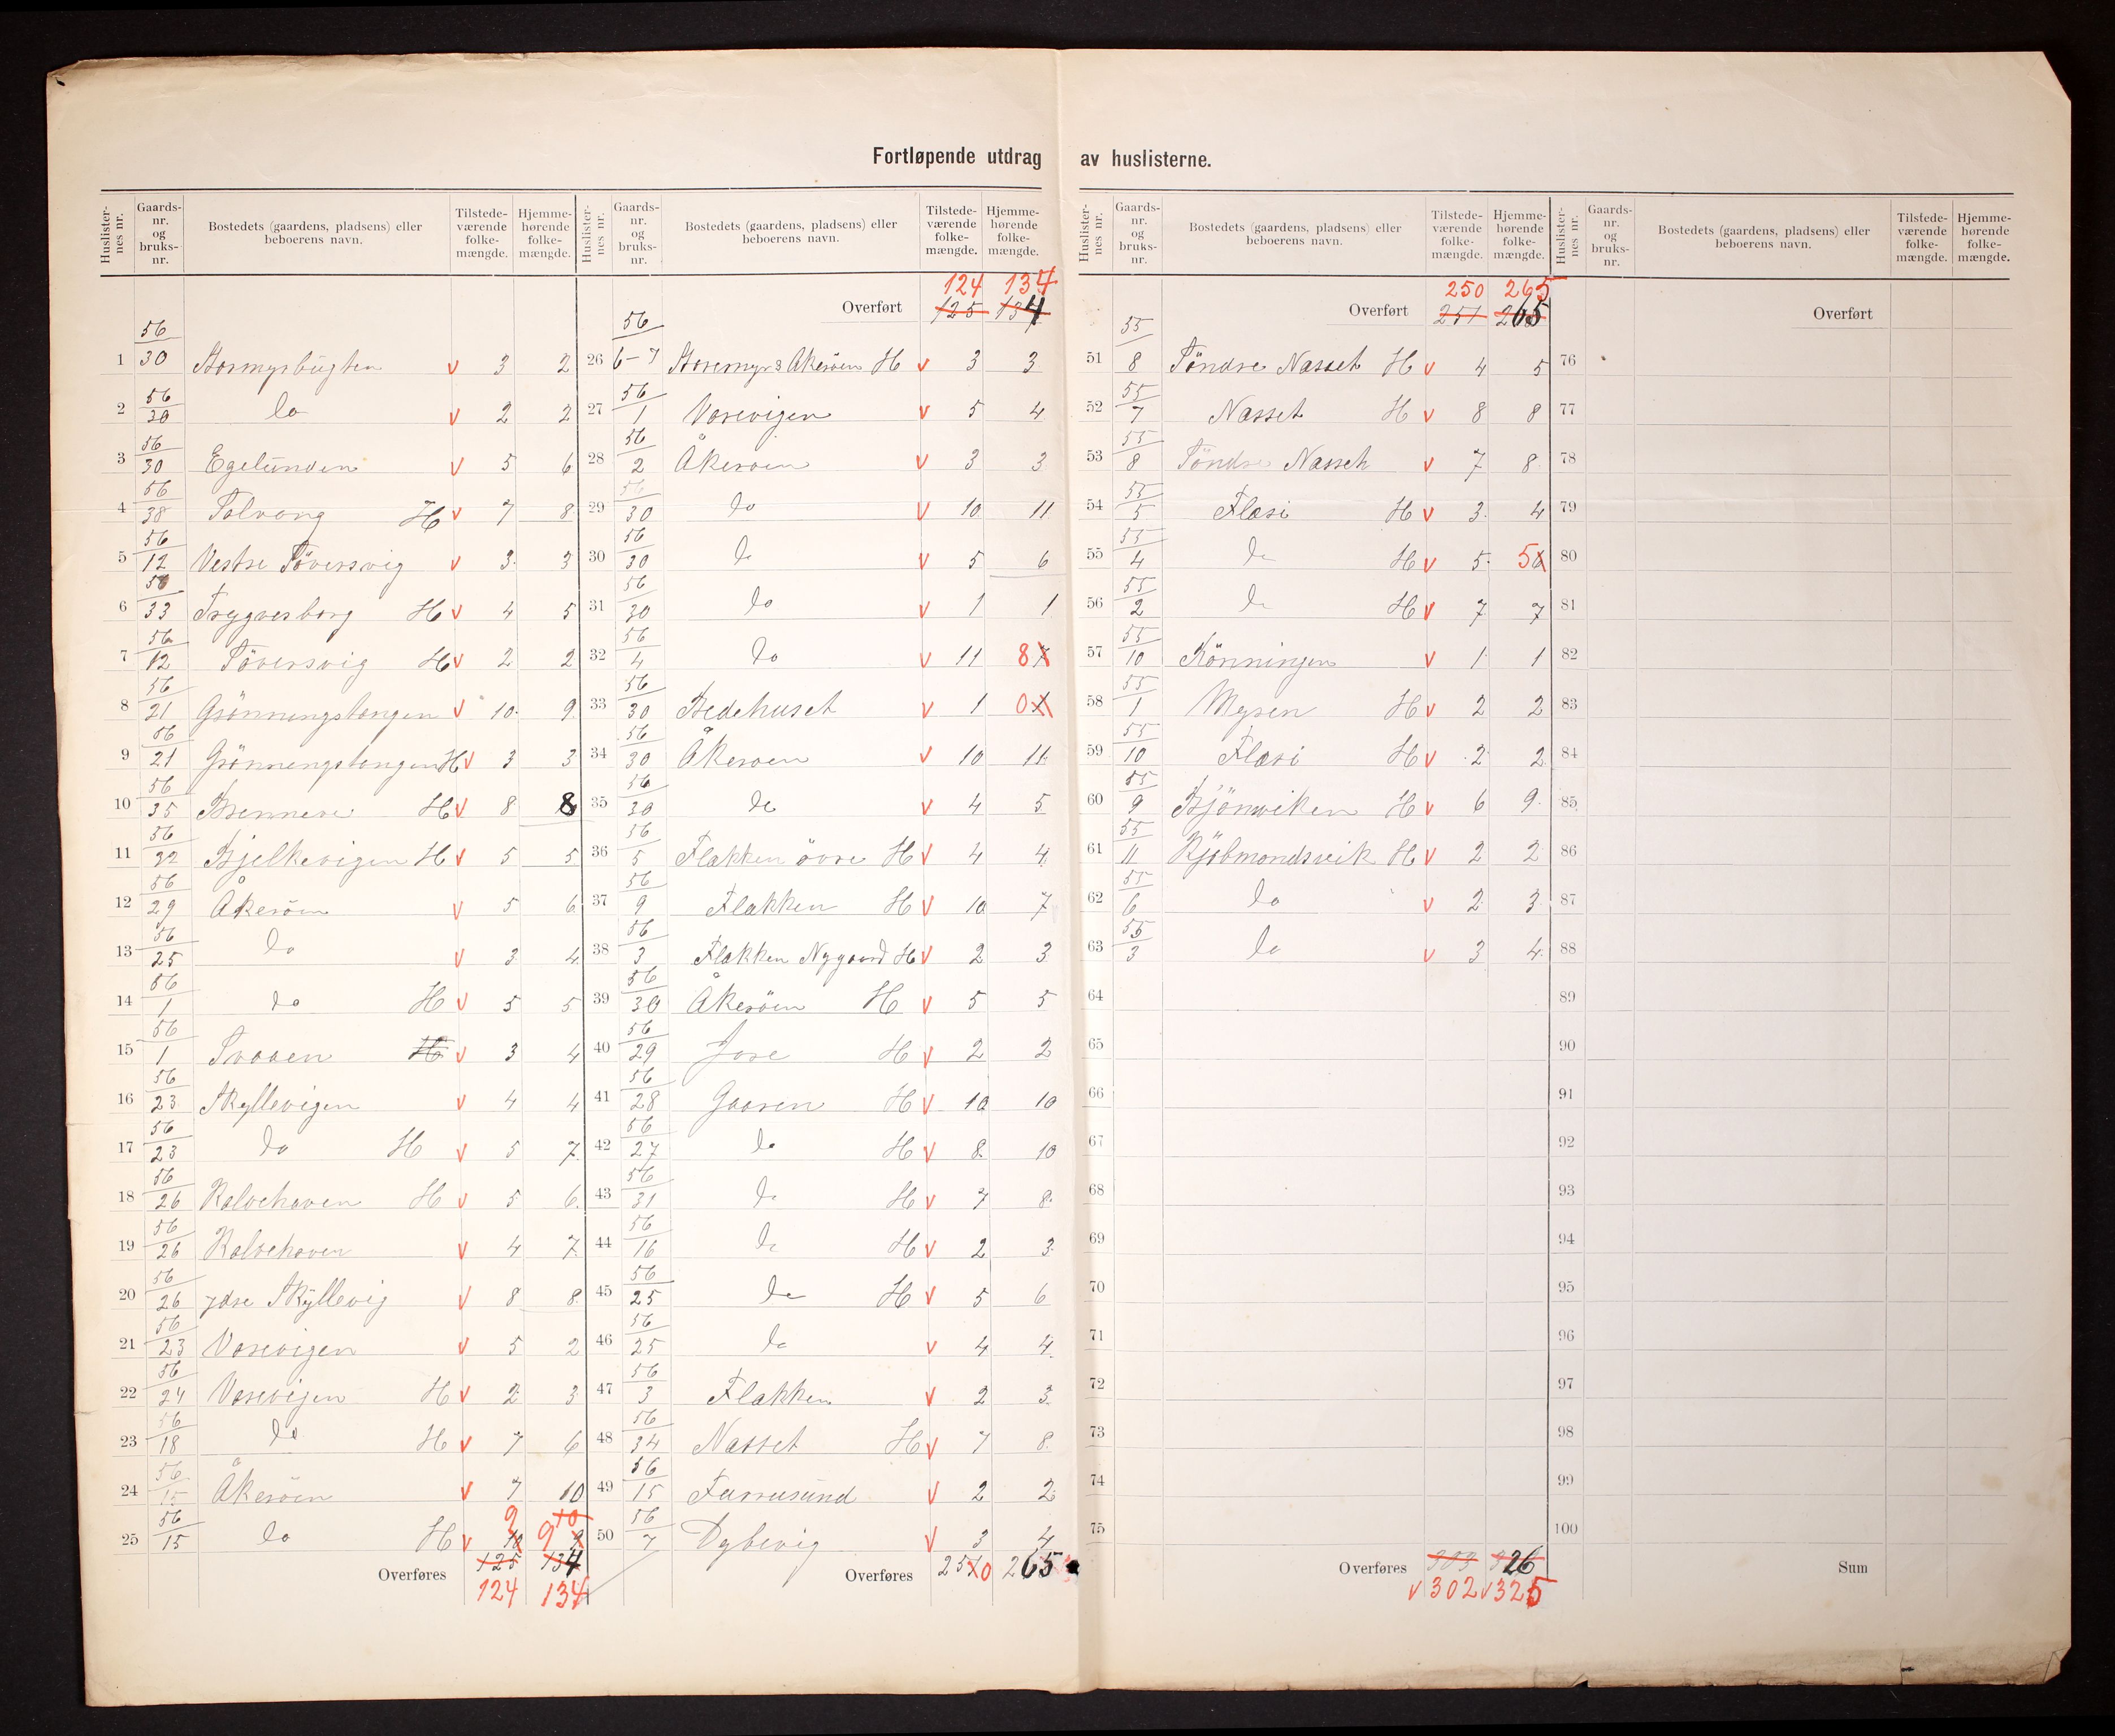 Fortløpende utdrag av huslisterne.
Huslister-nes nr. Gaards-nr. og bruks-nr. Bostedets (gaardens, pladsens) eller beboerens navn. Tilstede-værende folke-mængde. Hjemme-hørende folke-mængde.
1 56/30 Stormyrbugten v 3 2
2 56/30 do v 2 2
3 56/30 Egelunden v 5 6
4 56/38 Solvang H v 7 8
5 56/12 Vestre Töversvig v 3 3
6 56/33 Trygvesborg H v 4 5
7 56/12 Töversvig H v 2 2
8 56/21 Grönningstangen v 10 9
9 56/21 Grönningstangen H v 3 3
10 56/35 Brennere H v 8 8
11 56/32 Bjelkevigen H v 5 5
12 56/29 Åkeröen v 5 6
13 56/25 do v 3 4
14 56/1 do H v 5 5
15 56/1 Svaaen H v 3 4
16 56/23 Skyllevigen v 4 4
17 56/23 do H v 5 7
18 56/26 Kalvehaven H v 5 6
19 56/26 Kalvehaven v 4 7
20 56/26 ydre Skyllevig v 8 8
21 56/23 Vasevigen v 5 2
22 56/24 Vasevigen H v 2 3
23 56/18 do H v 7 6
24 56/15 Åkeröen v 7 10
25 56/15 do H v 9 9
Overføres 125 134
124 134
Huslister-nes nr. Gaards-nr. og bruks-nr. Bostedets (gaardens, pladsens) eller beboerens navn. Tilstede-værende folke-mængde. Hjemme-hørende folke-mængde.
124 134
Overført 125 134
26 56/6-7 Storemyr & Akeröen H v 3 3
27 56/1 Vasevigen v 5 4
28 56/2 Åkeroen v 3 3
29 56/30 do v 10 11
30 56/30 do v 5 6
31 56/30 do v 1 1
32 56/4 do v 11 8
33 56/30 Bedehuset v 1 0
34 56/30 Åkeroen v 10 11
35 56/30 do v 4 5
36 56/5 Flakken övre H v 4 4
37 56/9 Flakken H v 10 7
38 56/3 Flakken Nygaard H v 2 3
39 56/30 Åkeröen H v 5 5
40 56/29 Jore H v 2 2
41 56/28 Gaasen H v 10 10
42 56/27 do H v 8 10
43 56/31 do H v 7 8
44 56/16 do H v 2 3
45 56/25 do H v 5 6
46 56/25 do v 4 4
47 56/3 Flakken v 2 3
48 56/34 Næsset H v 7 8
49 56/15 Furrusund v 2 2
50 56/7 Dybevig v 3 4
Overføres 250 265
Huslister-nes nr. Gaards-nr. og bruks-nr. Bostedets (gaardens, pladsens) eller beboerens navn. Tilstede-værende folke-mængde. Hjemme-hørende folke-mængde.
250 265
Overført 251 265
51 55/8 Söndre Næsset H v 4 5
52 55/7 Næsset H v 8 8
53 55/8 Söndre Næsset v 7 8
54 55/5 Flæsi H v 3 4
55 55/4 do H v 5 5
56 55/2 do H v 7 7
57 55/10 Rönningen v 1 1
58 55/1 Mysen H v 2 2
59 55/10 Flæsi H v 2 2
60 55/9 Bjönviken H v 6 9
61 55/11 Kjöbmandsvik H v 2 2
62 55/6 do v 2 3
63 55/3 do v 3 4
64
65
66
67
68
69
70
71
72
73
74
75
Overføres 303 326
v 302 v 325
Huslister-nes nr. Gaards-nr. og bruks-nr. Bostedets (gaardens, pladsens) eller beboerens navn. Tilstede-værende folke-mængde. Hjemme-hørende folke-mængde.
Overført
76
77
78
79
80
81
82
83
84
85
86
87
88
89
90
91
92
93
94
95
96
97
98
99
100
Sum